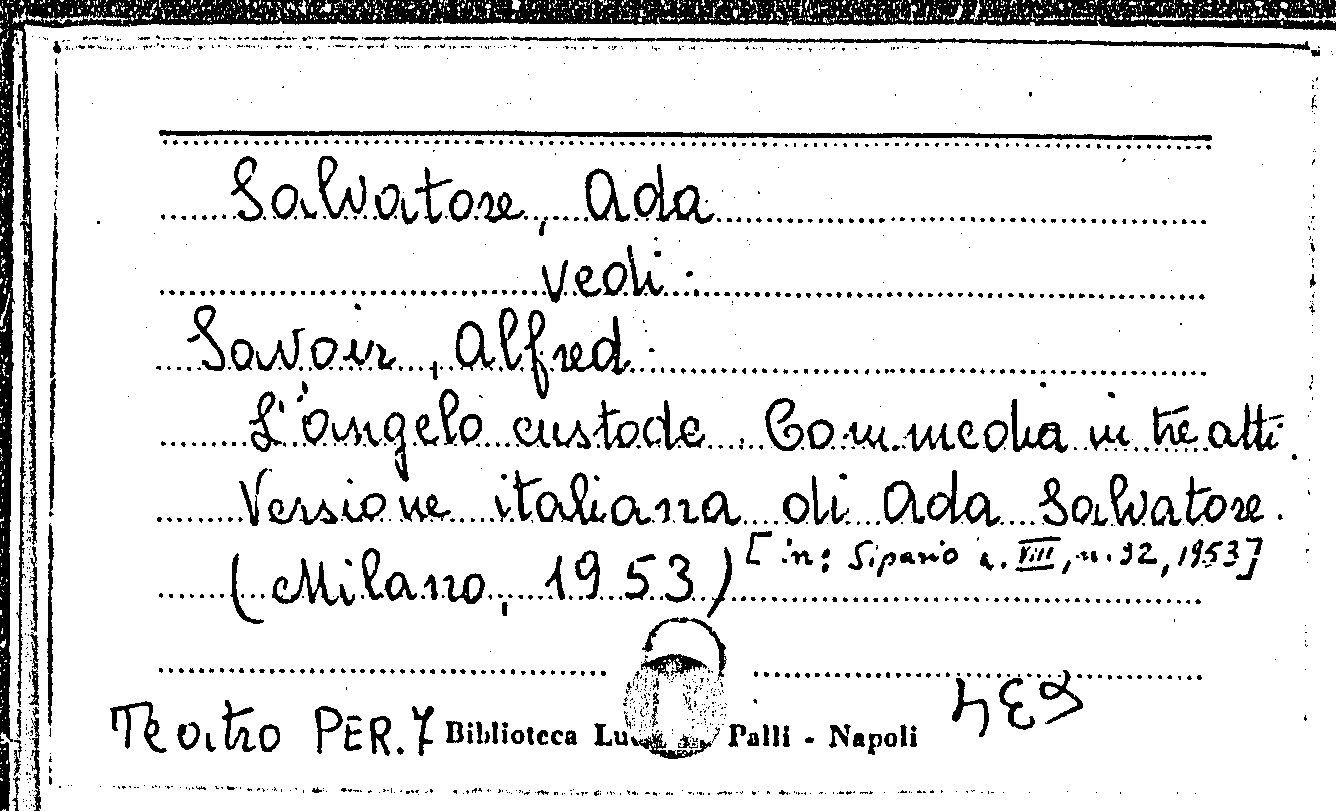 Salvatore, Ada
vedi:
Savoir, Alfred.
L'angelo custode. Commedia in tre atti.
Versione italiana di Ada Salvatore.
(Milano, 1953) [in: Sipario a. VIII, n. 92, 1953]
Teatro PER. 7 Biblioteca Palli - Napoli